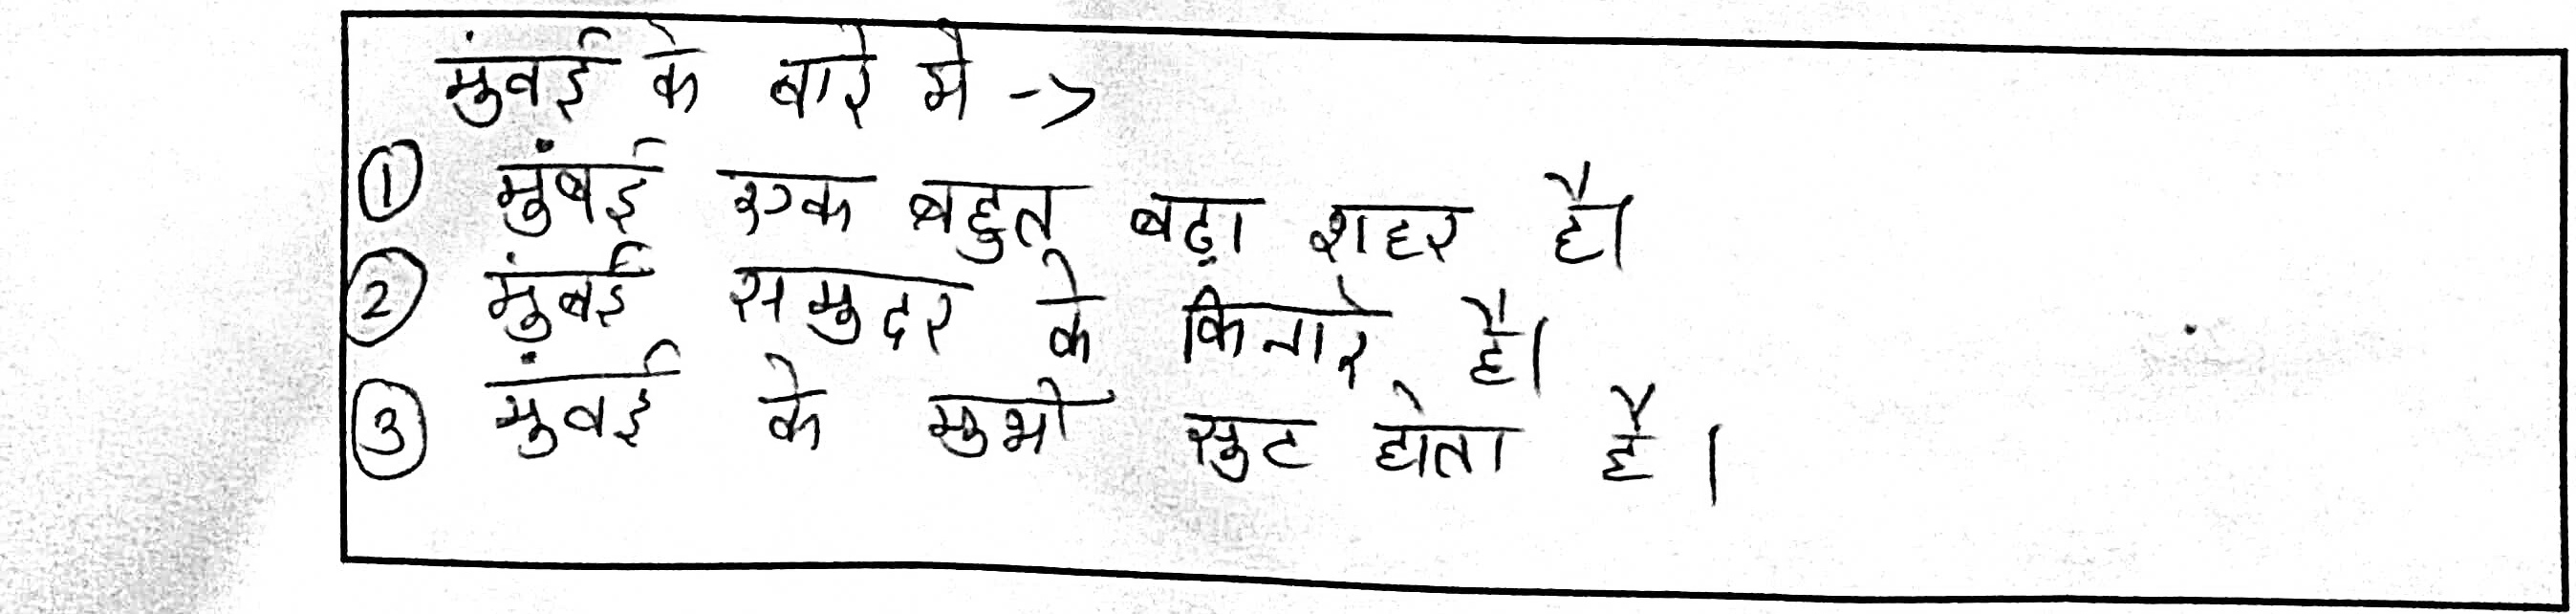 मुंवई के बारे मे ->
① मुंबई एक बहुत बढ़ा शहर है।
② मुंबई समुदर के किनारे है।
③ मुंवई के मुभी सुट होता है।